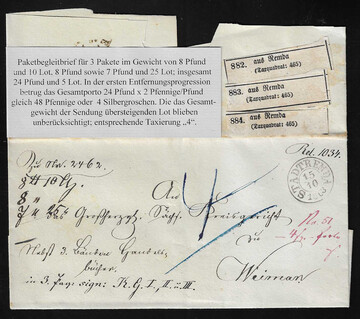 Paketbegleitbrief für 3 Pakete im Gewicht von 8 Pfund
und 10 Lot, 8 Pfund sowie 7 Pfund und 25 Lot; insgesamt
24 Pfund und 5 Lot. In der ersten Entfernungsprogression
betrug das Gesamtporto 24 Pfund x 2 Pfennige/Pfund
gleich 48 Pfennige oder 4 Silbergroschen. Die das Gesamt-
gewicht der Sendung übersteigenden Lot blieben
unberücksichtigt; entsprechende Taxierung „4“.
882. aus Remda
(Taxquadrat: 465)
883. aus Remda
(Taxquadrat: 465)
884. aus Remda
(Taxquadrat: 465)
Rd. 1034.
Zu Nr. 2462.
An
STADTREMDA
15
10
Das Großherzogl. Sächs. Kreisgericht
zu
Nebst 3 Bänden Handels-
bücher
Weimar
in 3 sign: K.G. I, II u. III.